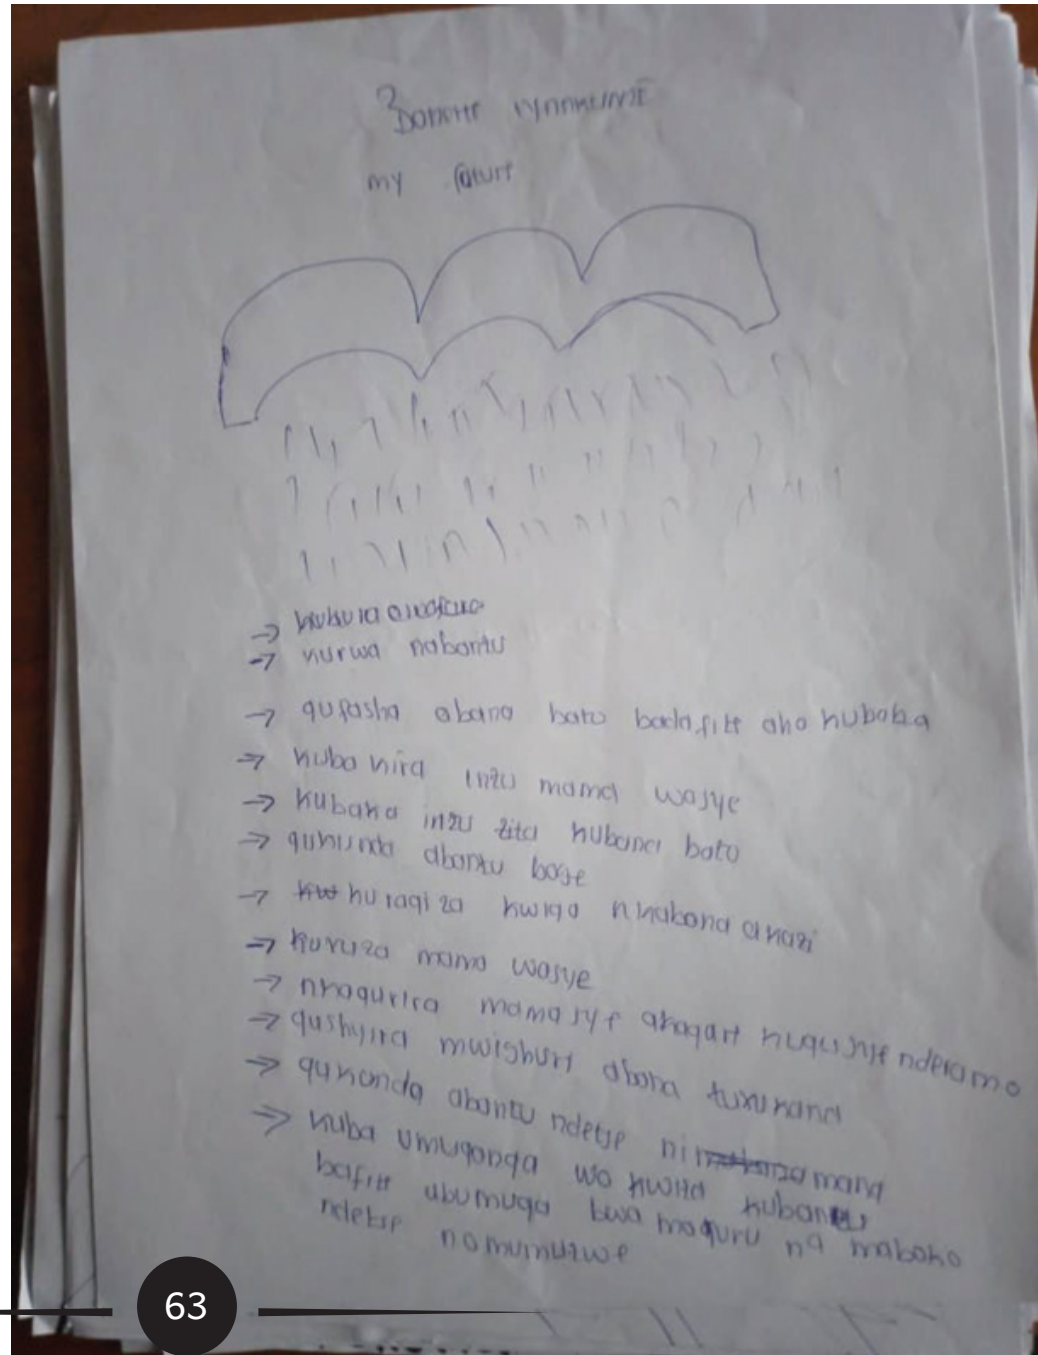 my future
→ kukura
→ kurwa nabantu
→ gufasha abana bato badafite aho kubaba
→ kuba kira inzu mama wajye
→ kubaka inzu zita kubana bato
→ gukunda abantu boje
→ kuragiza kwiga nkabona akazi
→ kuvuza mama wajye
→ nkagurira mama jye akagare kugushje nderamo
→ gushyira mwishuri abana tuvukana
→ gukanda abantu ndetse ni mana
→ kuba umuganga wo kwita kubantu
bafite ubumuga bwa maguru na maboko
ndetse nomumutwe
63